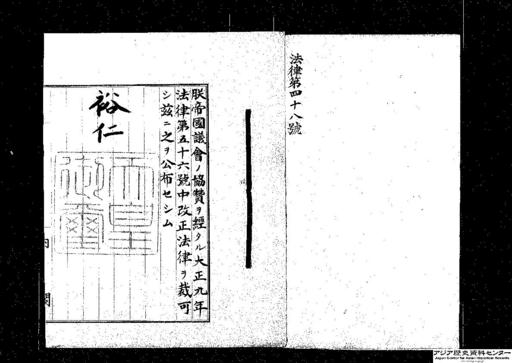 法律第四十八號
朕帝國議會ノ協贊ヲ經タル大正九年
法律第五十六號中改正法律ヲ裁可
シ茲ニ之ヲ公布セシム
裕仁
天皇
御璽
內
閣
アジア歴史資料センター
Japan Center for Asian Historical Records